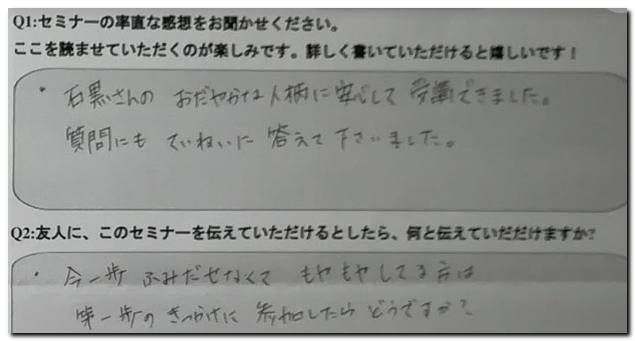 Q1:セミナーの率直な感想をお聞かせください。
ここを読ませていただくのが楽しみです。詳しく書いていただけると嬉しいです!
・石黒さんの おだやかな人柄に安心して 受講できました。
質問にも ていねいに 答えて下さいました。
Q2:友人に、このセミナーを伝えていただけるとしたら、何と伝えていだだけますか?
・今一歩 ふみだせなくて もやもやしてる方は
第一歩の きっかけに 参加したら どうですか?